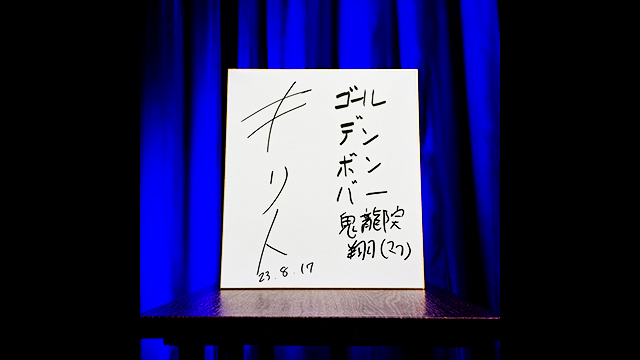 ゴール
デン
ボン
バー
鬼龍院
翔(マフ)
キリト
23.8.17